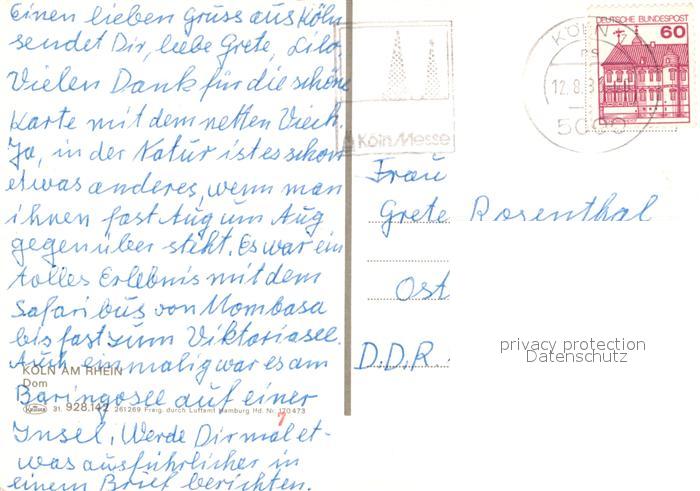 Einen lieben Gruss aus Köln
sendet Dir, liebe Grete, Lilo.
Vielen Dank für die schöne
Karte mit dem netten Viech.
Ja, in der Natur ist es schon
etwas anderes, wenn man
ihnen fast Aug um Aug
gegenüber steht. Es war ein
tolles Erlebnis mit dem
Safaribus von Mombasa
bis fast zum Viktoriasee.
Auch einmalig war es am
Baringosee auf einer
Insel. Werde Dir mal et-
was ausführlicher in
einem Brief berichten.
KÖLN AM RHEIN
Dom
Krüger 31. 928.142 261269 Freig. durch Luftamt Hamburg lfd. Nr. 170473
7
KölnMesse
KÖLN 7
12.8.
5000
DEUTSCHE BUNDESPOST
60
Frau
Grete Rosenthal
Ost
D.D.R.
privacy protection
Datenschutz